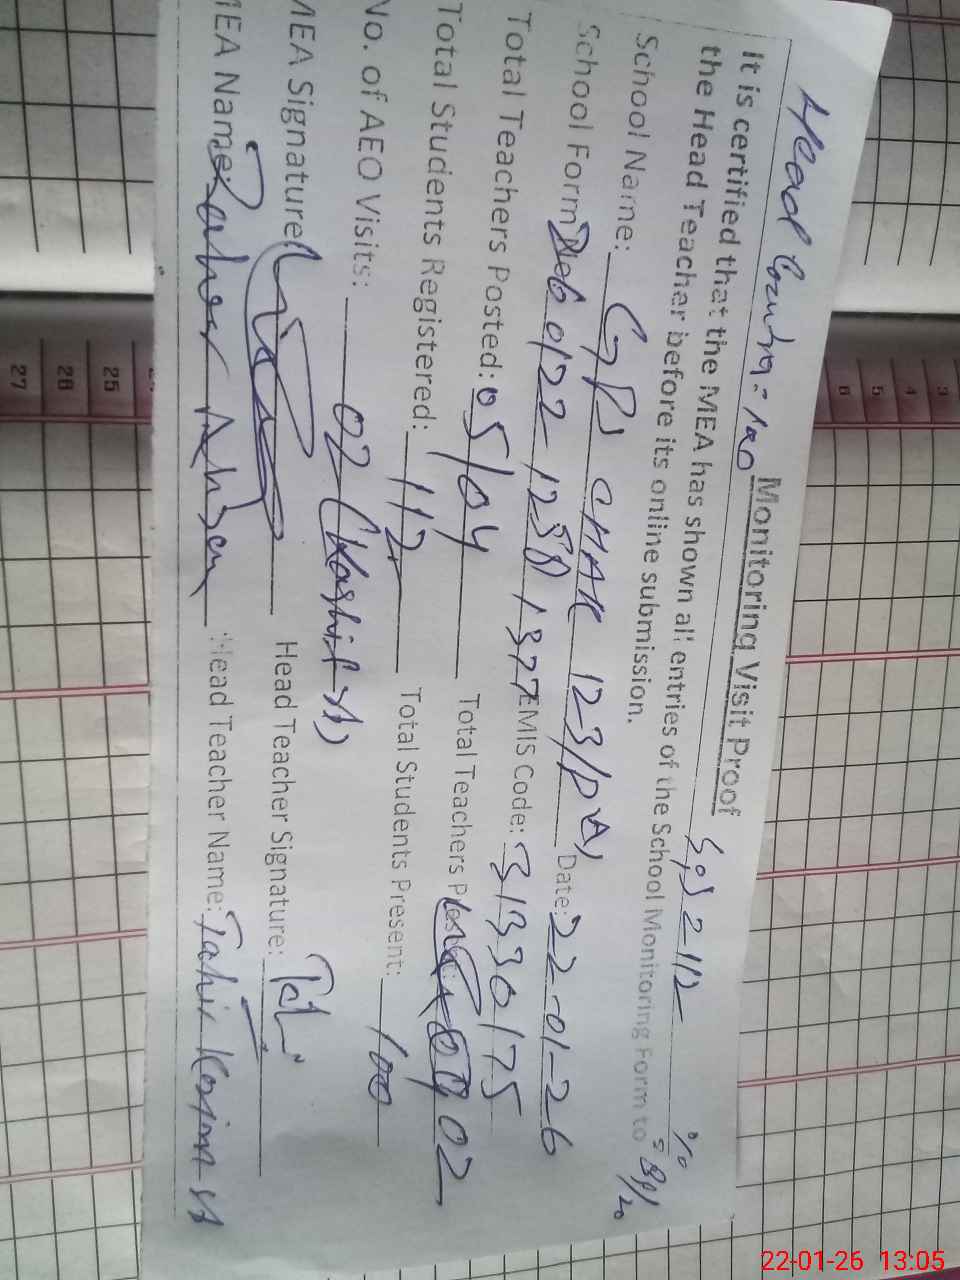 Head Count = 100
Monitoring Visit Proof
SIS = 112 %
It is certified that the MEA has shown all entries of the School Monitoring Form to
the Head Teachar before its online submission.
School Name: GPS CHAK 123/P Date: 22-01-26
School Form 0122 1377 EMIS Code: 31330175
Total Teachers Posted: 05/04 Total Teachers 02
Total Students Registered: 112 Total Students Present: 100
No. of AEO Visits: 02 (Kashif
MEA Signature: Head Teacher Signature:
MEA Name: Ahsan Head Teacher Name: Tahir
3
4
5
6
25
26
27
22-01-26 13:05